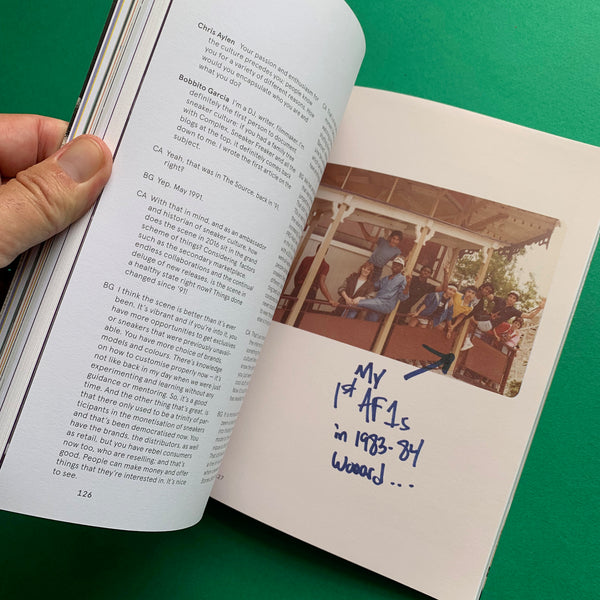 Chris Aylen Your passion and enthusiasm for
the culture precedes you; people know
you for a variety of different reasons. How
would you encapsulate who you are and
what you do?
Bobbito Garcia I'm a DJ, writer, filmmaker. I'm
definitely the first person to document
sneaker culture; if you had a family tree
with Complex, Sneaker Freaker and all the
blogs at the top, it definitely comes back
down to me. I wrote the first article on the
subject.
CA Yeah, that was in The Source, back in '91,
right?
BG Yep. May 1991.
CA With that in mind, and as an ambassador
and historian of sneaker culture, how
does the scene in 2016 sit in the grand
scheme of things? Considering factors
such as the secondary marketplace,
endless collaborations and the continual
deluge of new releases, is the scene in
a healthy state right now? Things done
changed since '91!
BG I think the scene is better than it's ever
been. It's vibrant and if you're into it, you
have more opportunities to get exclusives
or sneakers that were previously unavail-
able. You have more choice of brands,
models and colours. There's knowledge
on how to customise properly now – it's
not like back in my day when we were just
experimenting and learning without any
guidance or mentoring. So, it's a good
time. And the other thing that's great, is
that there only used to be a trinity of par-
ticipants in the monetisation of sneakers
and that's been democratised now. You
have the brands, the distributors, as well
as retail, but you have rebel consumers
now too, who are reselling; and that's
good. People can make money and offer
things that they're interested in. It's nice
to see.
126
CA
BG
CA
BG
My
1st AF1s
in 1983-84
Wooord...